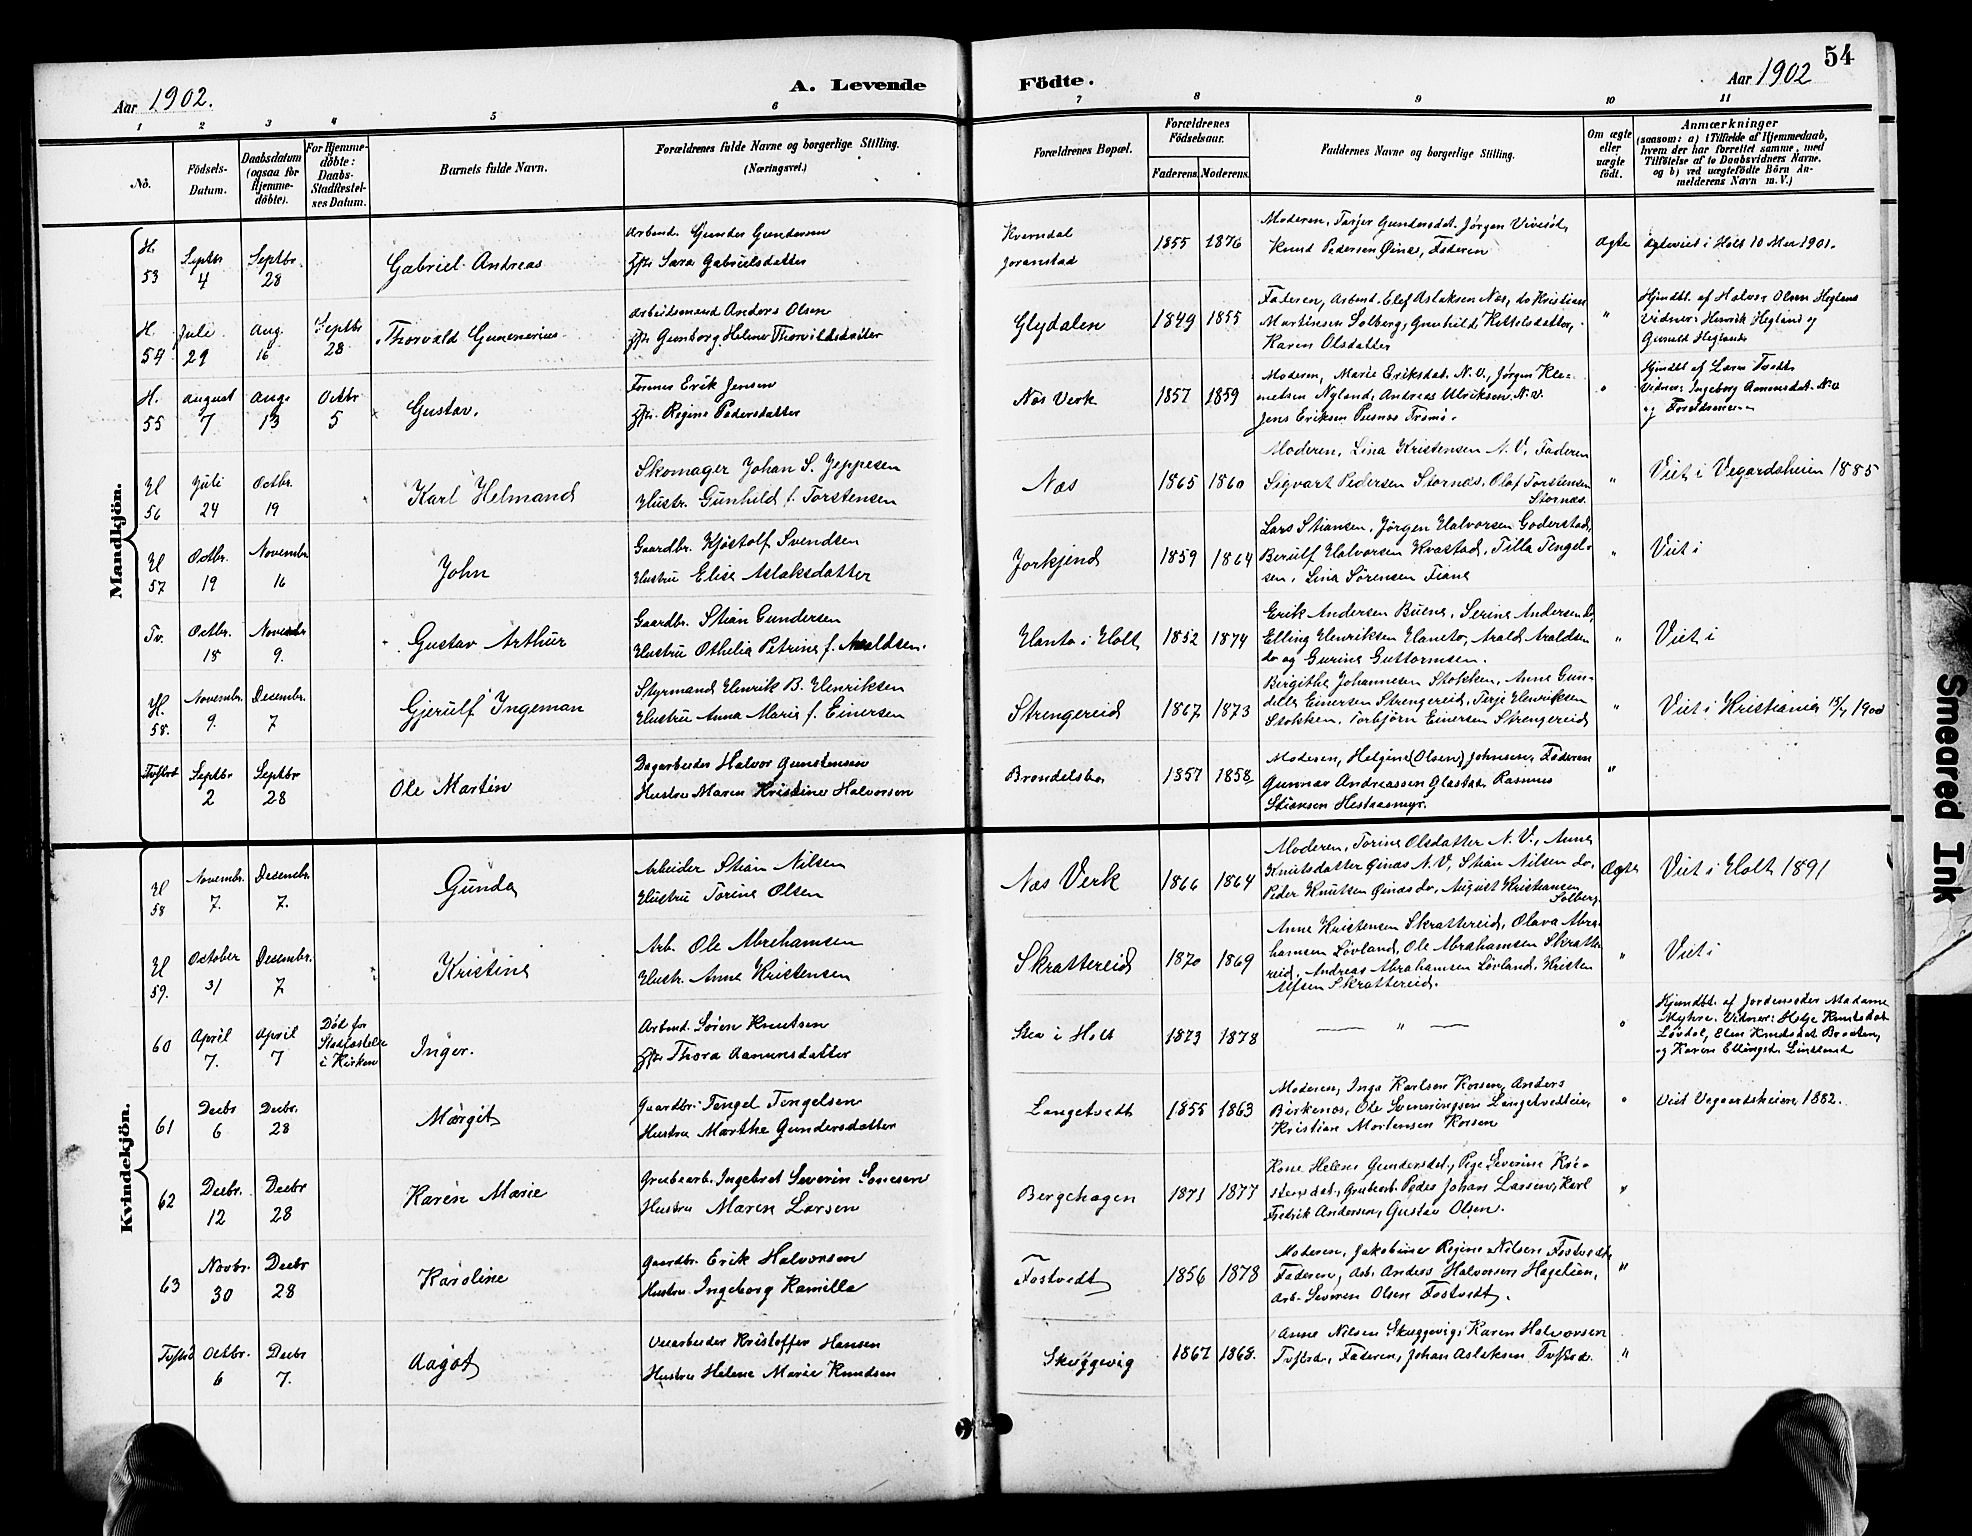 54
Aar 1902.
A. Levende
Födte.
Aar 1902
1 2 3 4 5 6 7 8 9 10 11
No.
Födsels-
Datum.
Daabsdatum
(ogsaa for
Hjemme-
döbte).
For Hjemme-
döbte:
Daabs-
Stadfæstel-
ses Datum.
Barnets fulde Navn.
Forældrenes fulde Navne og borgerlige Stilling.
(Næringsvei.)
Forældrenes Bopæl.
Forældrenes
Födselsaar.
Faderens. Moderens.
Faddernes Navne og borgerlige Stilling.
Om ægte
eller
uægte
födt.
Anmærkninger
(saasom: a) i Tilfælde af Hjemmedaab,
hvem der har forrettet samme, med
Tilföielse af to Daabsvidners Navne.
og b) ved uægtefödte Börn An-
melderens Navn m.V.)
Mandkjön.
H.
53
Septbr
4
Septbr.
28
Gabriel Andreas
Arbmd. Gunder Gundersen
Hst. Sara Gabrielsdatter
Kverndal
Joranstad
1855 1876
Moderen, Tarjer Gundersdat. Jørgen
Knud Pedersen Øinæs, Faderen
ægte
Ægteviet i Holt 10 Mai 1901.
H.
54
Juli
29
Aug
16
Septbr
28
Thorvald Gunnerius
Arbeidsmand Anders Olsen
Hst. Gunborg Helene Thorvildsdatter
Glydalen
1849 1855
Faderen, Arbmd. Elef Aslaksen Næs, do Kristian
Martinsen Solberg, Gunhild Kittelsdatter,
Karen Olsdatter
"
Hjmdbt. af Halvor Olsen Hegland
Vidner: Henrik Hegland og
Gunuld Hegland
H.
55
August
7
Aug.
13
Octbr
5
Gustav.
Former Erik Jensen
Hst. Regine Pedersdatter
Næs Verk
1857 1859
Moderen, Marie Eriksdat. N.V., Jørgen Kle-
metsen Nyland, Andreas Ulriksen N.V.
Jens Eriksen Pusnæs Tromø.
"
Hjmdbt af Laren Tvedt
Vidner: Ingeborg Aamundsdat. N.V
og
H
56
Juli
24
Octbr.
19
Karl Helmand
Skomager Johan S. Jeppesen
Hustr. Gunhild f. Torstensen
Næs
1865 1860
Moderen, Lina Kristensen N.V, Faderen
Sigvart Pedersen Stornæs, Olaf Torstensen
Stornæs.
"
Viet i Vegardsheien 1885
H
57
Octbr.
19
Novembr
16
John
Gaardbr. Kjøstolf Svendsen
Hustru Elise Aslaksdatter
Jorkjend
1859 1864
Lars Stiansen, Jørgen Halvorsen Goderstad,
Berulf Halvorsen Kvastad, Tilla Tengel-
sen, Lina Sørensen Fiane
"
Viet i
Tv.
Octbr.
18
Novembr
9.
Gustav Arthur
Gaardbr. Stian Gundersen
Hustru Othelia Petrine f. Araldsen.
Hanto i Holt
1852 1874
Erik Andersen Buene, Serine Andersen do,
Elling Henriksen Haneto, Arald Araldsen
do og Gurine Guttormsen.
"
Viet i
H.
58.
Novembr.
9.
Desembr.
7
Gjerulf Ingeman
Styrmand Henrik B. Henriksen
Hustru Anna Marie f. Einersen
Strengereid
1867 1873
Birgithe Johannesen Stokken, Anne Gun-
dille Einersen Strengereid, Terje Henriksen
Stokken, Torbjørn Einersen Strengereid
"
Viet i Kristiania 15/7 1900
Septbr
2
Septbr
28
Ole Martin
Dagarbeider Halvor Gunstensen
Hustru Maren Kristine Halvorsen
Brondelsbo
1857 1858
Moderen, Helgine (Olsen) Johnsen, Faderen
Gunnar Andreassen Glastad Rasmus
Stiansen Hestaasmyr.
"
Kvindekjön.
H
58
Novembr.
7.
Desembr.
7.
Gunda
Arbeider Stian Nilsen
Hustru Torine Olsen
Næs Verk
1866 1864
Moderen, Torine Olsdatter N.V., Anne
Knutsdatter Øinæs N.V, Stian Nilsen do,
Peder Knutsen Øinæs do, August Kristiansen
Solberg
Ægte
Viet i Holt 1891
H
59.
October
31
Desembr.
7
Kristine
Arb. Ole Abrahamsen
Hustr. Anne Kristensen
Skrattereid
1870 1869
Anne Kristensen Skrattereid, Olava Abra-
hamsen Løvland, Ole Abrahamsen Skratte-
reid, Andreas Abrahamsen Løvland, Kristen
Alfsen Skrattereid.
"
Viet i
60
April
7.
April
7
Død før
Stadfæstelse
i Kirken
Inger.
Arbmd. Søren Knutsen
Hst. Thora Aamundsdatter
Stea i Holt
1873 1878
— " —
"
Hjmdbt. af Jordemoder Madame
Myhre. Vidner: Helje Knutsdat
Løvdal, Elen Knudsdat Braaten,
og Karen Ellingsd. Lindland
61
Decbr
6
Decbr.
28
Margit
Gaardbr. Tengel Tengelsen
Hustru Marthe Gundersdatter
Langetvedt
1855 1863
Moderen, Inga Karlsen Korsen, Anders
Birkenæs, Ole Svenningsen Langetvedteie,
Kristian Mortensen Korsen
"
Viet Vegaardsheien 1882.
62
Decbr.
12
Decbr
28
Karen Marie
Grubearb. Ingebret Severin Sørensen
Hustru Maren Larsen
Bergehagen
1871 1877
Kone Helene Gundersdat., Pige Severine Kri-
stensdat., Grubearb. Peder Johan Larsen, Karl
Fredrik Andersen, Gustav Olsen.
"
63
Novbr.
30
Decbr
28
Karoline
Gaardbr. Erik Halvorsen
Hustru Ingeborg Kamilla
Fostvedt
1856 1878
Moderen, Jakobine Regine Nilsen Fostvedt,
Faderen, Arb. Anders Halvorsen Hagelien,
Arb. Severen Olsen Fostvedt.
"
Octbr.
6
Decbr
7.
Aagot
Veiarbeider Kristoffer Hansen
Hustru Helene Marie Knudsen
Skuggevig
1867 1868.
Anne Nilsen Skuggevig, Karen Halvorsen
Faderen, Johan Aslaksen
"
Smeared Ink